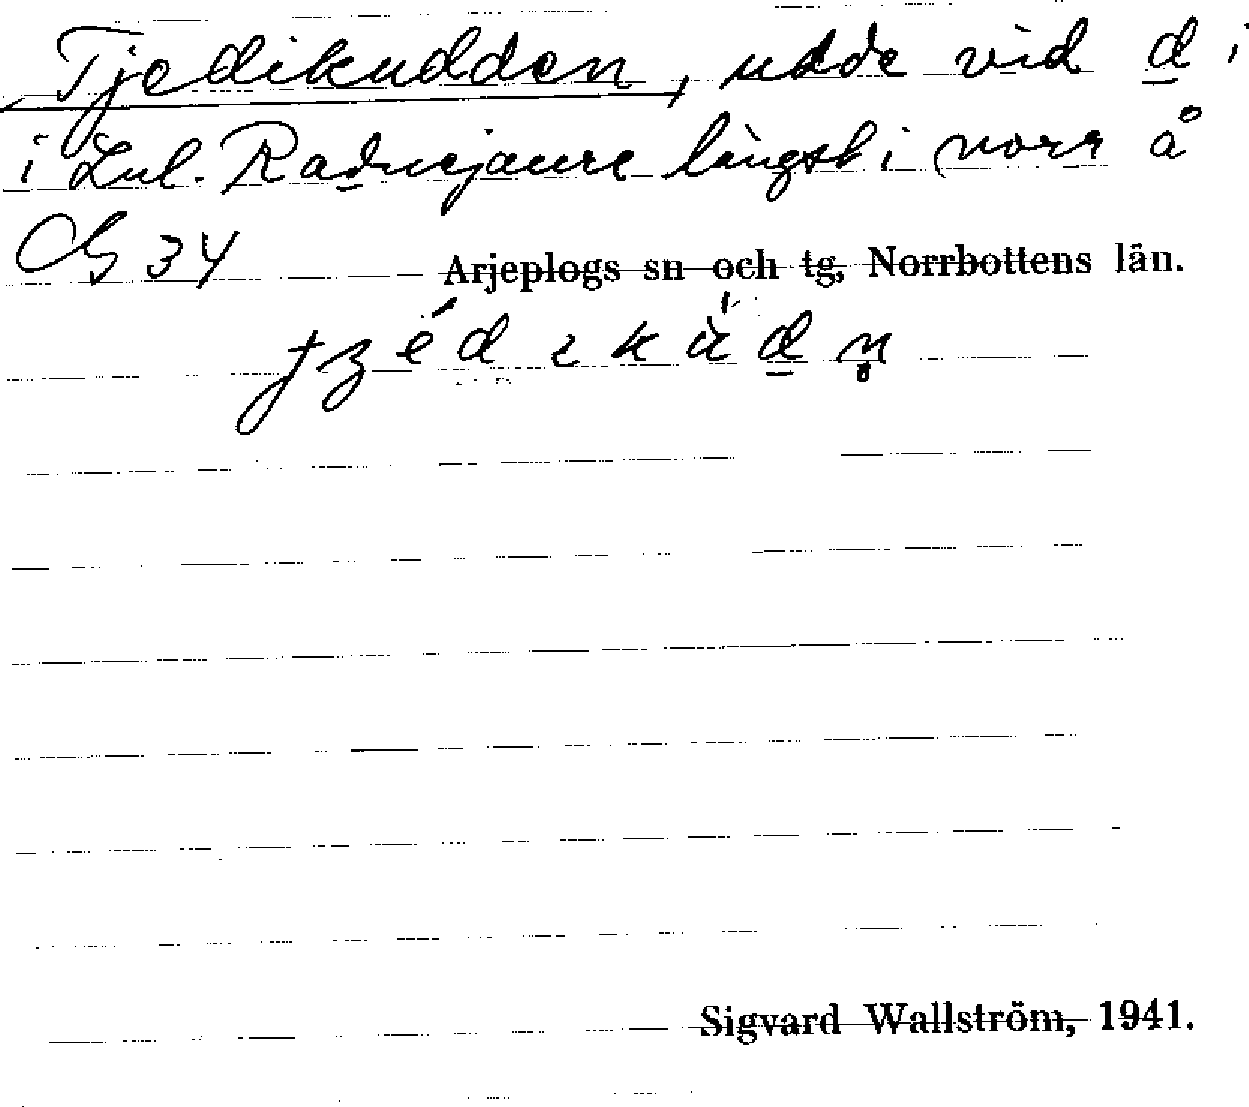 Tjedikudden, udde vid d i
i Lul. Radnejaure längst i norr å
34 Arjeplogs sn och tg, Norrbottens län.
Sigvard Wallström, 1941.